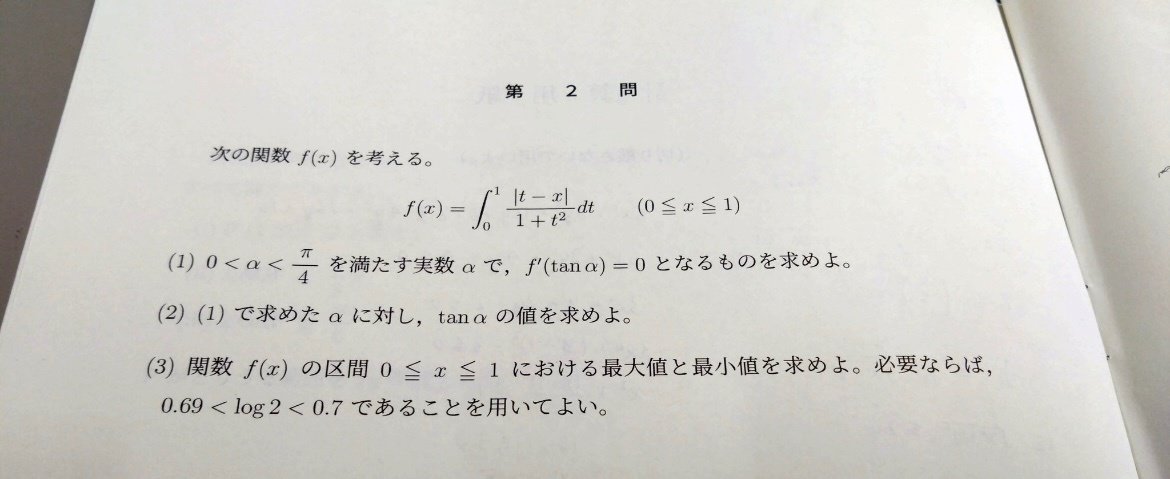 第 2 問
次の関数 f(x) を考える。
f(x) = ∫₀¹ |t − x| / (1 + t²) dt (0 ≦ x ≦ 1)
(1) 0 < α < π/4 を満たす実数 α で，f′(tan α) = 0 となるものを求めよ。
(2) (1) で求めた α に対し，tan α の値を求めよ。
(3) 関数 f(x) の区間 0 ≦ x ≦ 1 における最大値と最小値を求めよ。必要ならば，
0.69 < log 2 < 0.7 であることを用いてよい。